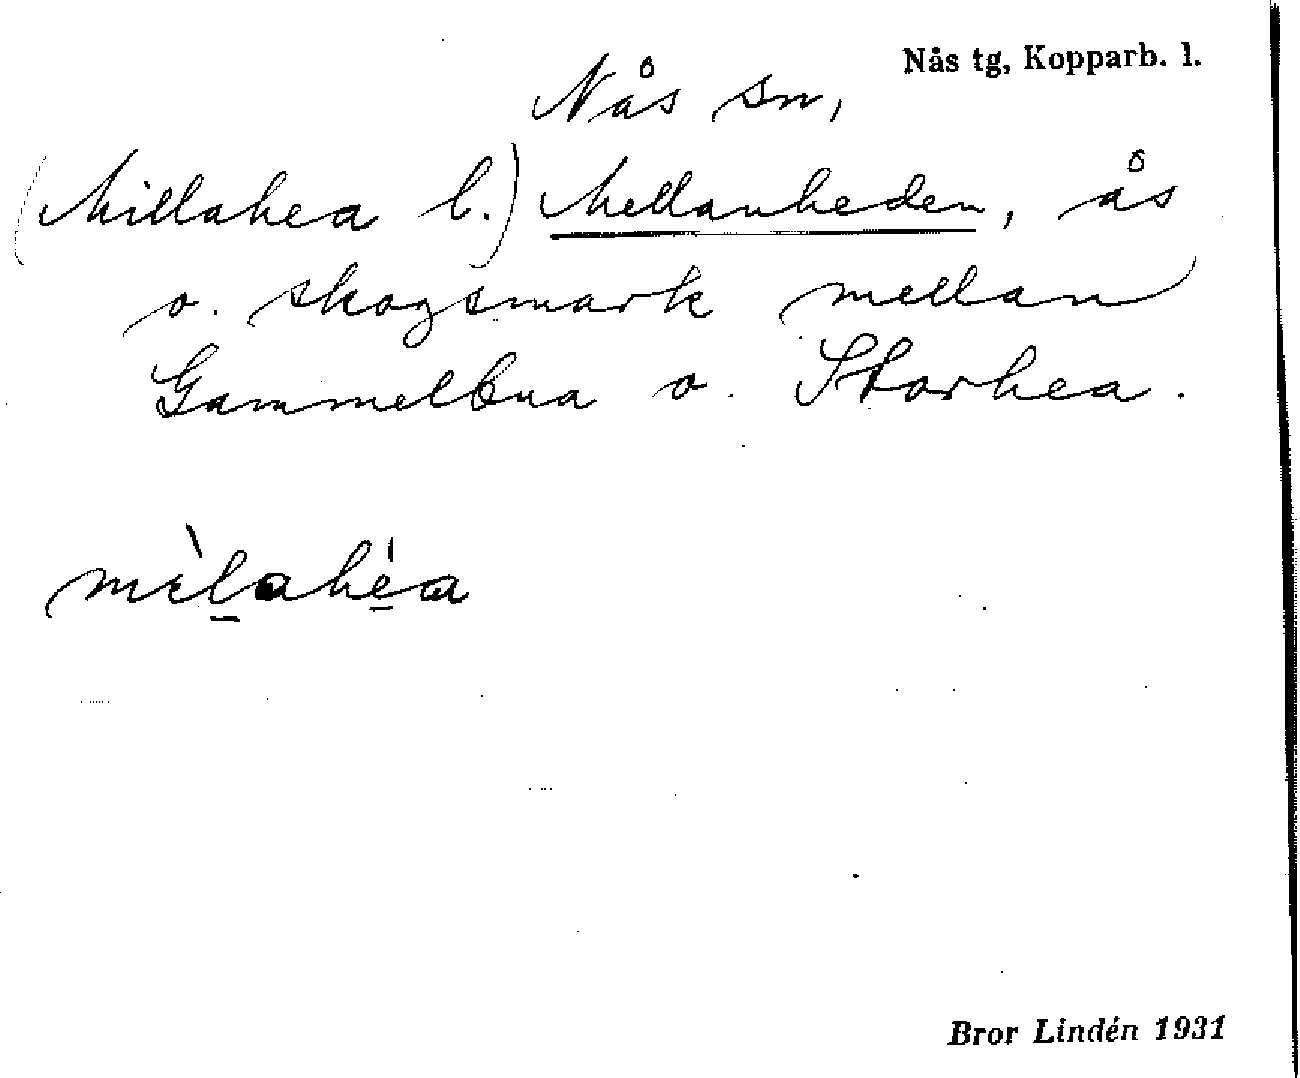 Nås tg, Kopparb. l.
Nås sn,
(Millahea l.) Mellanheden, ås
o. skogsmark mellan
Gammelbua o. Storhea.
mèlahéa
Bror Lindén 1931